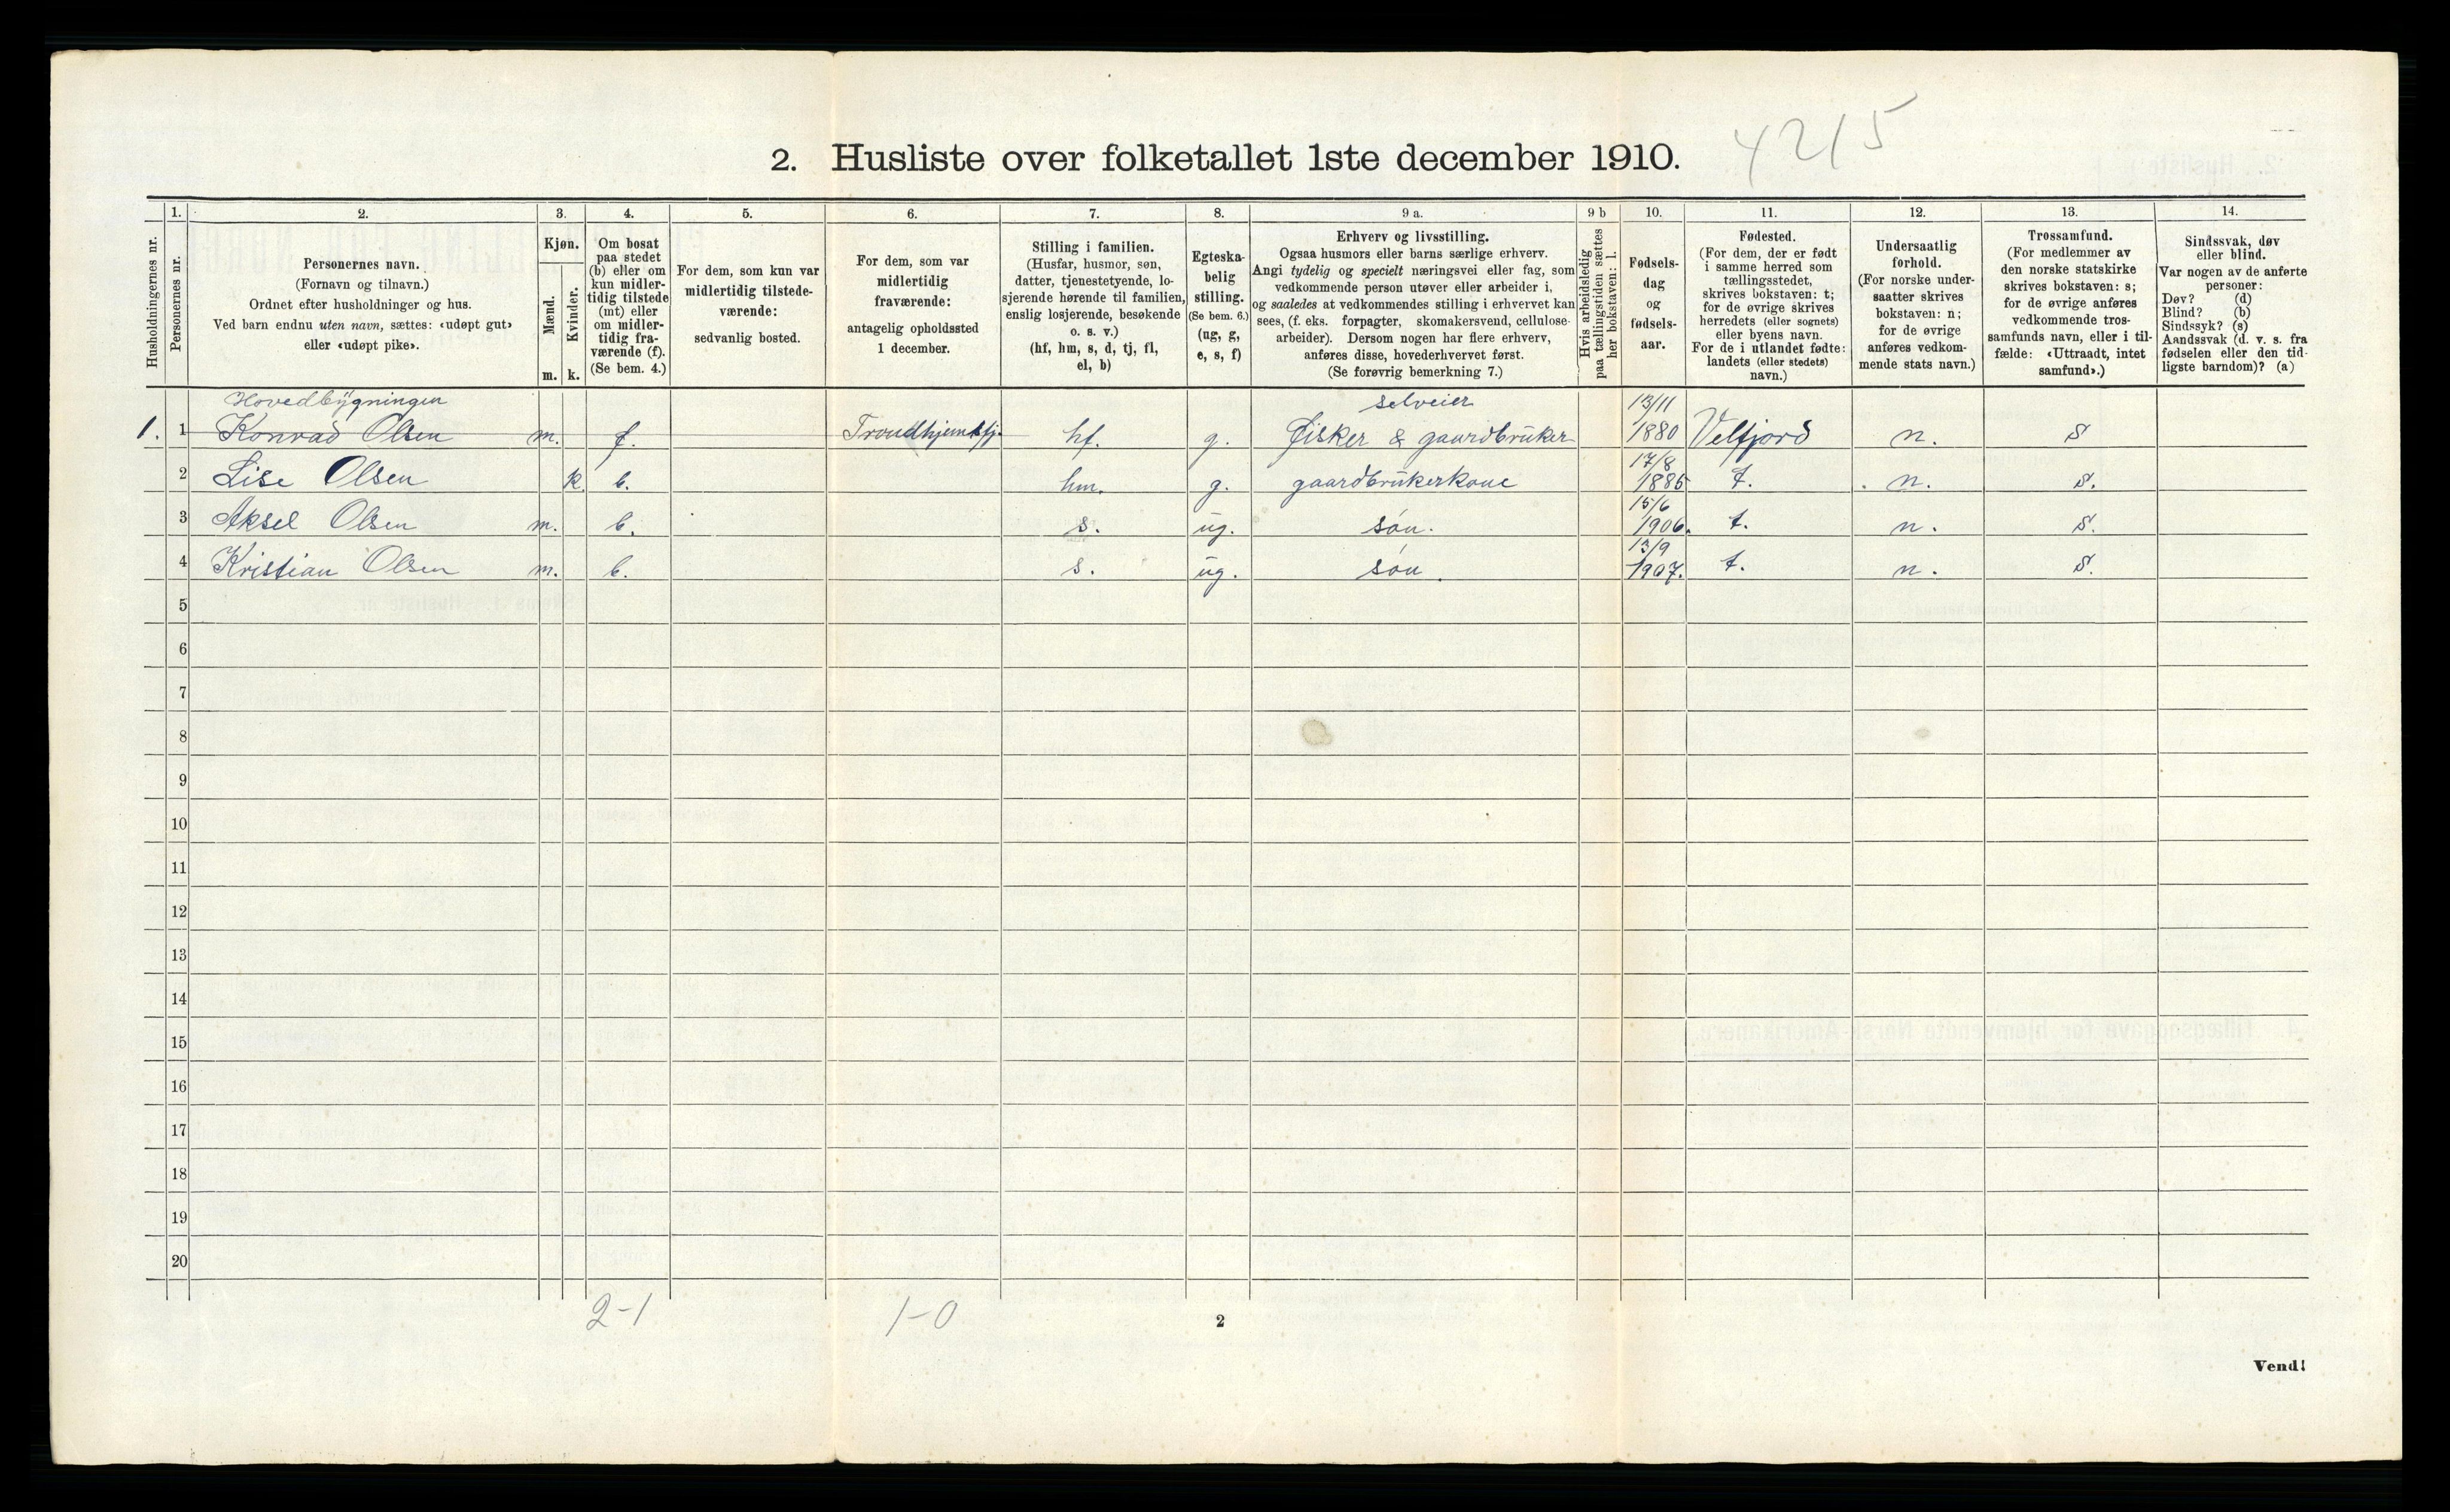 4215
2. Husliste over folketallet 1ste december 1910.
1. 2. 3. 4. 5. 6. 7. 8. 9 a. 9 b 10. 11. 12. 13. 14.
Husholdningernes nr.
Personernes nr.
Personernes navn.
(Fornavn og tilnavn.)
Ordnet efter husholdninger og hus.
Ved barn endnu uten navn, sættes: «udøpt gut»
eller «udøpt pike».
Kjøn.
Mænd.
Kvinder.
m. k.
Om bosat
paa stedet
(b) eller om
kun midler-
tidig tilstede
(mt) eller
om midler-
tidig fra-
værende (f).
(Se bem. 4.)
For dem, som kun var
midlertidig tilstede-
værende:
sedvanlig bosted.
For dem, som var
midlertidig
fraværende:
antagelig opholdssted
1 december.
Stilling i familien.
(Husfar, husmor, søn,
datter, tjenestetyende, lo-
sjerende hørende til familien,
enslig losjerende, besøkende
o. s. v.)
(hf, hm, s, d, tj, fl,
el, b)
Egteska-
belig
stilling.
(Se bem. 6.)
(ug, g,
e, s, f)
Erhverv og livsstilling.
Ogsaa husmors eller barns særlige erhverv.
Angi tydelig og specielt næringsvei eller fag, som
vedkommende person utøver eller arbeider i,
og saaledes at vedkommendes stilling i erhvervet kan
sees, (f. eks. forpagter, skomakersvend, cellulose-
arbeider). Dersom nogen har flere erhverv,
anføres disse, hovederhvervet først.
(Se forøvrig bemerkning 7.)
Hvis arbeidsledig
paa tællingstiden sættes
her bokstaven: l.
Fødsels-
dag
og
fødsels-
aar.
Fødested.
(For dem, der er født
i samme herred som
tællingsstedet,
skrives bokstaven: t;
for de øvrige skrives
herredets (eller sognets)
eller byens navn.
For de i utlandet fødte:
landets (eller stedets)
navn.)
Undersaatlig
forhold.
(For norske under-
saatter skrives
bokstaven: n;
for de øvrige
anføres vedkom-
mende stats navn.)
Trossamfund.
(For medlemmer av
den norske statskirke
skrives bokstaven: s;
for de øvrige anføres
vedkommende tros-
samfunds navn, eller i til-
fælde: «Uttraadt, intet
samfund».)
Sindssvak, døv
eller blind.
Var nogen av de anførte
personer:
Døv? (d)
Blind? (b)
Sindssyk? (s)
Aandssvak (d. v. s. fra
fødselen eller den tid-
ligste barndom)? (a)
Hovedbygningen selveier 13/11
1. 1 Konrad Olsen m. f. Trondhjemsfj. hf. g. Fisker & gaardbruker 1880 Velfjord n. S
17/8
2 Lise Olsen k. b. hm. g. gaardbrukerkone 1885 t. n. S.
15/6
3 Aksel Olsen m. b. s. ug. søn. 1906. t. n. S.
13/9
4 Kristian Olsen m. b. s. ug. søn. 1907. t. n. S.
5
6
7
8
9
10
11
12
13
14
15
16
17
18
19
20
2-1 1-0
2
Vend!